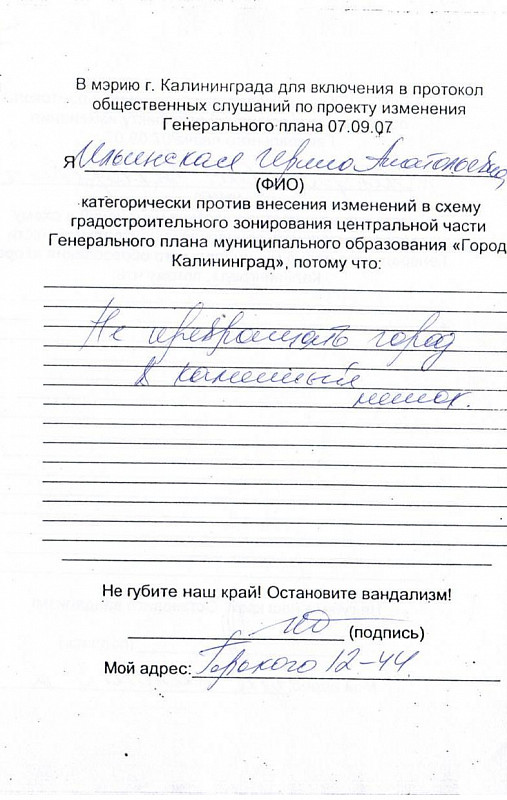 В мэрию г. Калининграда для включения в протокол
общественных слушаний по проекту изменения
Генерального плана 07.09.07
Я Ильинская Анатольевна,
(ФИО)
категорически против внесения изменений в схему
градостроительного зонирования центральной части
Генерального плана муниципального образования «Город
Калининград», потому что:
Не превращать город
в каменный
мешок.
Не губите наш край! Остановите вандализм!
(подпись)
Мой адрес: Горького 12-44